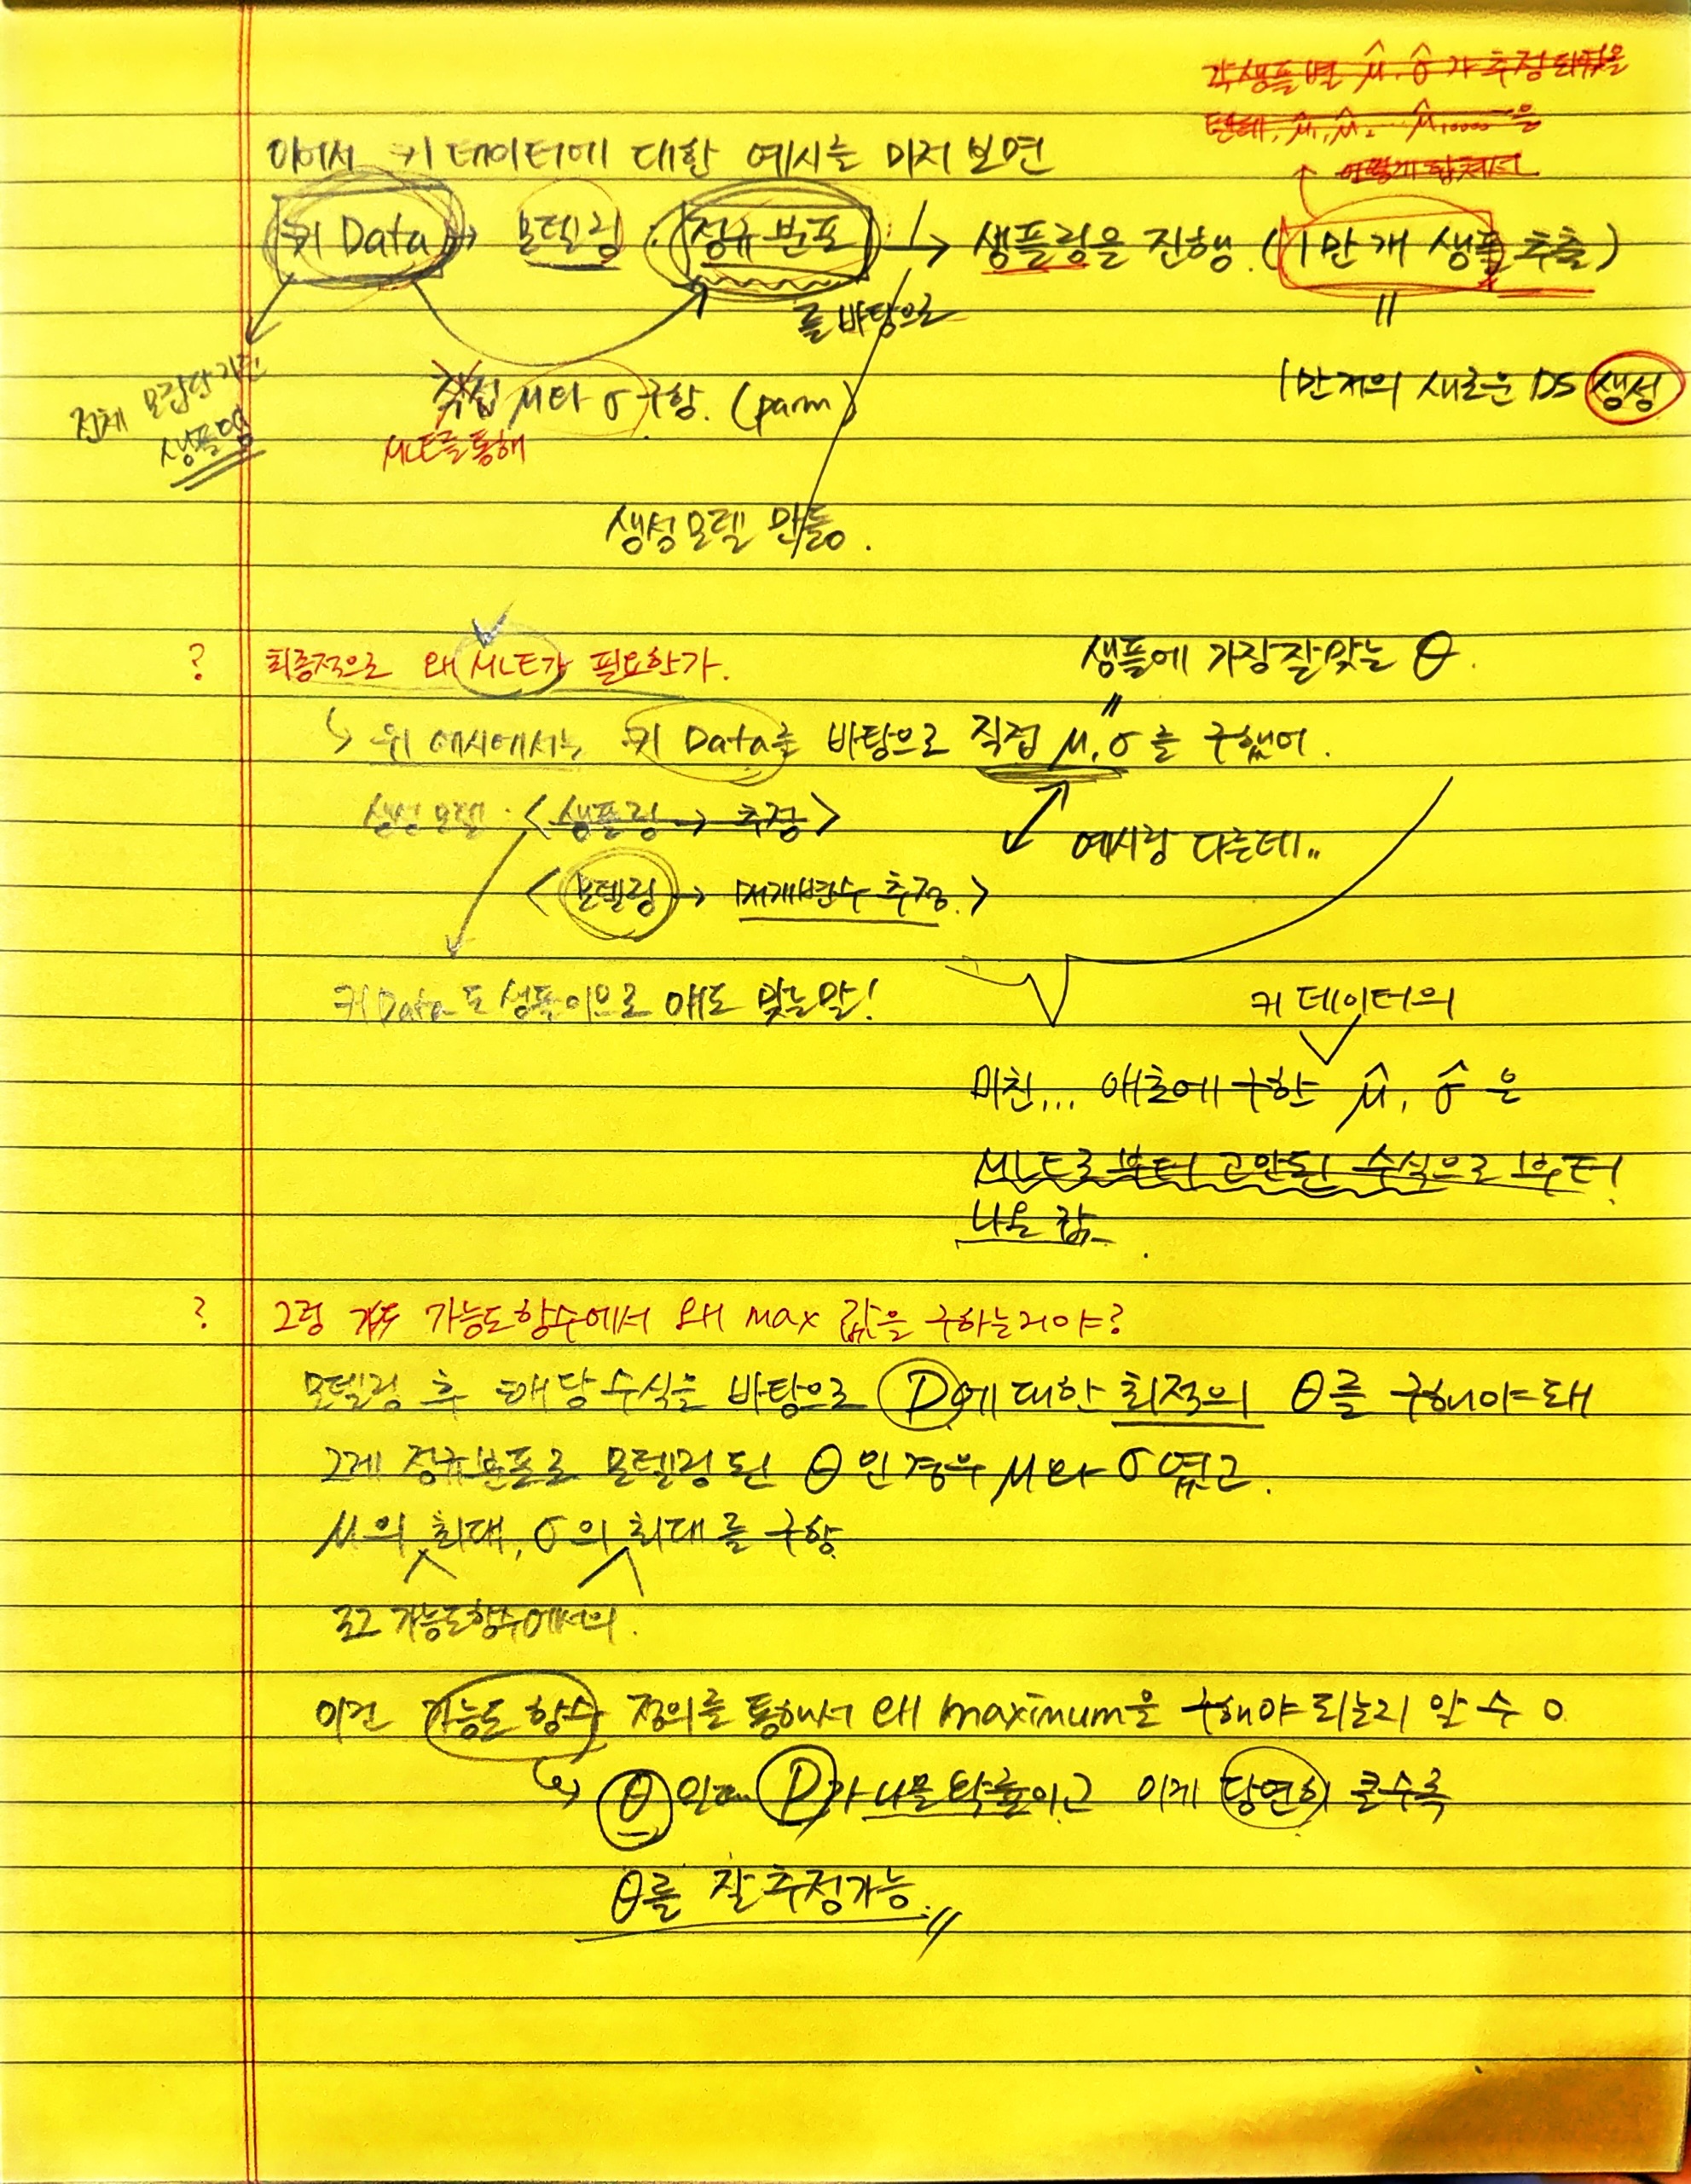 각 샘플 별 μ̂, σ̂ 가 추정 되었을
텐데, μ̂₁, μ̂₂ ... μ̂₁₀₀₀₀ 을
어떻게 합쳐서
이어서 키 데이터에 대한 예시를 마저 보면
키 Data → 모델링 : 정규분포 → 샘플링을 진행. (1만개 샘플 추출)
를 바탕으로
||
전체 모집단 기준
샘플임
직접 μ타 σ 구함. (param)
MLE를 통해
1만개의 새로운 DS 생성
생성모델 만듦.
? 최종적으로 왜 MLE가 필요한가.
샘플에 가장 잘 맞는 θ.
||
↳ 위 예시에서는 키 Data를 바탕으로 직접 μ, σ를 구했어.
생성 모델 : <샘플링 → 추정>
예시랑 다른데..
<모델링 → 매개변수 추정.>
키 Data도 샘플이므로 얘도 맞는말!
키 데이터의
미친... 애초에 구한 μ̂, σ̂ 은
MLE로부터 고안된 수식으로 부터
나온 값.
? 그럼 가능도함수에서 왜 max 값을 구하는거야?
모델링 후 해당 수식을 바탕으로 D에 대한 최적의 θ를 구해야 돼
그게 정규분포로 모델링 된 θ인 경우 μ와 σ였고.
μ의 최대, σ의 최대를 구함
로그 가능도함수에서의.
이건 가능도 함수 정의를 통해서 왜 maximum을 구해야 되는지 알 수 O
↳ θ일때 D가 나올 확률이고 이게 당연히 클수록
θ를 잘 추정가능.